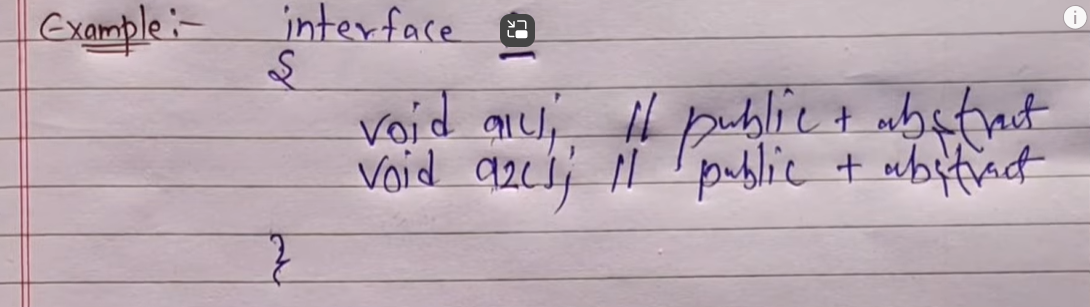 Example:- interface
{
void a1(); // public + abstract
void a2(); // public + abstract
}